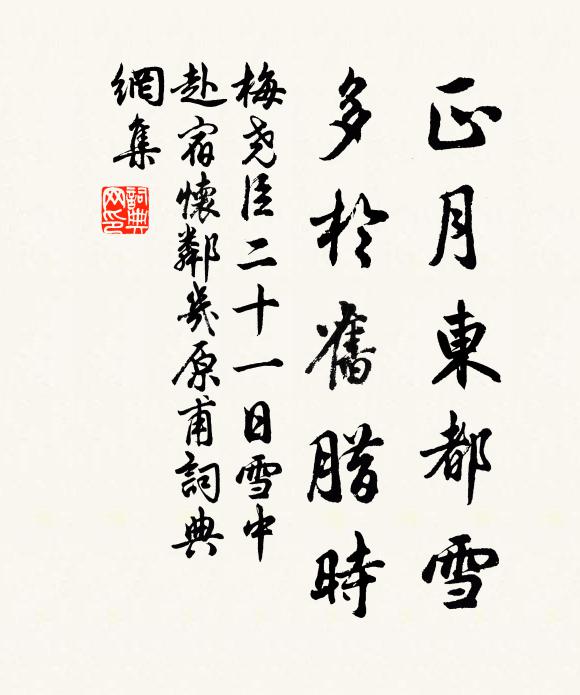 正月東都雪
多於舊腊時
梅尧臣二十一日雪中
赴宿懷鄰幾原甫詞典
網集
詞典
网印